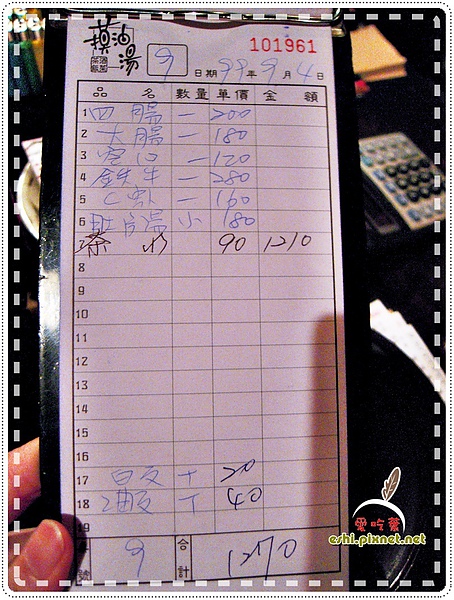 101961
9 日期 99 年 9 月 4 日
品名 數量 單價 金額
1 四 腸 一 200
2 大腸 一 180
3 一 120
4 鐵牛 一 280
5 一 160
6 肚 湯 小 180
茶水 90 1210
8
9
10
11
12
13
14
15
16
17 白反 T 20
18 T 40
19
號 9 合計 1270
愛吃鬼
eshi.pixnet.net